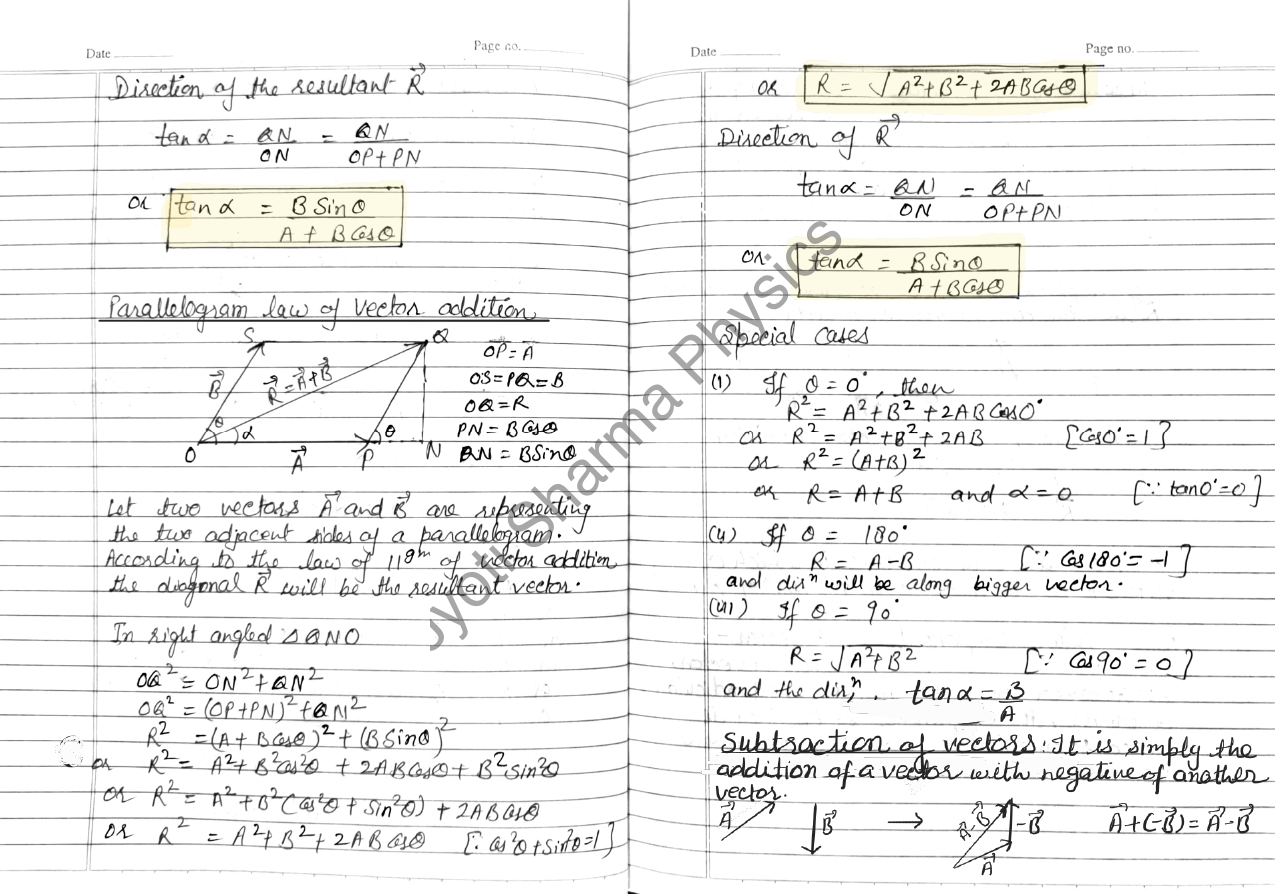 Date
Page no.
Direction of the resultant R⃗
tan α = QN/ON = QN/OP+PN
or tan α = B Sinθ / A + B Cosθ
Parallelogram law of vector addition
S
Q
OP⃗ = A⃗
B⃗
R⃗ = A⃗+B⃗
OS = PQ = B
OQ = R
θ
α
θ
PN = B Cosθ
O
A⃗
P
N
QN = B Sinθ
Let two vectors A⃗ and B⃗ are representing
the two adjacent sides of a parallelogram.
According to the law of 11gm of vector addition
the diagonal R⃗ will be the resultant vector.
In right angled △QNO
OQ² = ON² + QN²
OQ² = (OP+PN)² + QN²
R² = (A + B Cosθ)² + (B Sinθ)²
or R² = A² + B²cos²θ + 2AB Cosθ + B²sin²θ
or R² = A² + B²(Cos²θ + Sin²θ) + 2AB Cosθ
or R² = A² + B² + 2AB Cosθ [∵ cos²θ + sin²θ = 1]
Jyoti Sharma Physics
Date
Page no.
or R = √A²+B²+2AB Cosθ
Direction of R⃗
tan α = QN/ON = QN/OP+PN
or tan α = B Sinθ / A + B Cosθ
Special cases
(i) If θ = 0°, then
R² = A² + B² + 2AB Cos0°
or R² = A² + B² + 2AB [Cos0° = 1]
or R² = (A+B)²
or R = A+B and α = 0 [∵ tan0° = 0]
(ii) If θ = 180°
R = A-B [∵ Cos180° = -1]
and dirⁿ will be along bigger vector.
(iii) If θ = 90°
R = √A²+B² [∵ Cos90° = 0]
and the dirⁿ, tan α = B/A
Subtraction of vectors: It is simply the
addition of a vector with negative of another
vector.
A⃗
B⃗
→
A⃗-B⃗
-B⃗
A⃗
A⃗+(-B⃗) = A⃗-B⃗